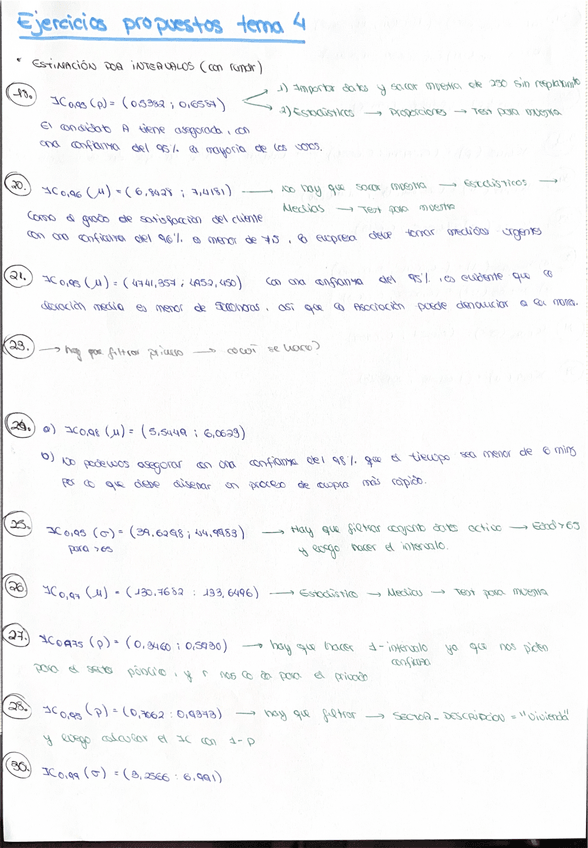 Ejercicios propuestos tema 4
* ESTIMACIÓN POR INTERVALOS (con rcmdr)
19. IC0,95 (p) = (0,5382 ; 0,6557) 1) Importar datos y sacar muestra de 250 sin reemplazamiento
2) Estadísticos → Proporciones → Test para muestra
El candidato A tiene asegurada, con
una confianza del 95% la mayoría de los votos.
20. IC0,96 (μ) = (6,8428 ; 7,4181) → No hay que sacar muestra → Estadísticos →
Medias → Test para muestra
Como el grado de satisfacción del cliente
con una confianza del 96% es menor de 7,5, la empresa debe tomar medidas urgentes
21. IC0,95 (μ) = (4741,357 ; 4952,450) Con una confianza del 95%, es evidente que la
duración media es menor de 5000 horas, así que la Asociación puede denunciar a la marca.
23. → hay que filtrar primero → ¿cómo se hace?
24. a) IC0,98 (μ) = (5,5449 ; 6,0623)
b) No podemos asegurar con una confianza del 98% que el tiempo sea menor de 6 mins
por lo que debe diseñar un proceso de compra más rápido.
25. IC0,95 (σ) = (39,6298 ; 44,9983) → Hay que filtrar conjunto datos activo → Edad>65
para >65 y luego hacer el intervalo.
26. IC0,97 (μ) = (130,7632 ; 133,6496) → Estadístico → Medias → Test para muestra
27. IC0,975 (p) = (0,3460 ; 0,5030) → hay que hacer 1 - intervalo ya que nos piden
confianza
para el sector público, y r nos lo da para el privado
28. IC0,95 (p) = (0,7062 ; 0,9373) → hay que filtrar → SECTOR_DESCRIPCION = "Vivienda"
y luego calcular el IC con 1-p
30. IC0,99 (σ) = (3,2566 ; 6,991)